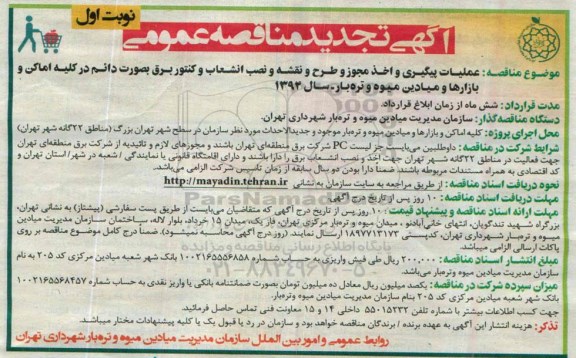 نوبت اول
آگهی تجدید مناقصه عمومی
موضوع مناقصه: عملیات پیگیری و اخذ مجوز و طرح و نقشه و نصب انشعاب و کنتور برق بصورت دائم در کلیه اماکن و
بازارها و میادین میوه و تره‌بار- سال ۱۳۹۴
مدت قرارداد: شش ماه از زمان ابلاغ قرارداد.
دستگاه مناقصه‌گزار: سازمان مدیریت میادین میوه و تره‌بار شهرداری تهران.
محل اجرای پروژه: کلیه اماکن و بازارها و میادین میوه و تره‌بار موجود و جدیدالاحداث مورد نظر سازمان در سطح شهر تهران بزرگ (مناطق ۲۲گانه شهر تهران)
شرایط شرکت در مناقصه: داوطلبین می‌بایست جز لیست PC شرکت برق منطقه‌ای تهران باشند و مجوزهای لازم و تائیدیه از شرکت برق منطقه‌ای تهران
جهت فعالیت در مناطق ۲۲گانه شهر تهران جهت اخذ و نصب انشعاب برق را دارا باشند و دارای اقامتگاه قانونی یا نمایندگی / شعبه در شهر/ استان تهران و
کد اقتصادی به همراه مستندات مربوطه باشند. ضمناً دارا بودن دو سال سابقه از زمان تاسیس شرکت الزامی می‌باشد.
نحوه دریافت اسناد مناقصه: از طریق مراجعه به سایت سازمان به نشانی http://mayadin.tehran.ir
مهلت دریافت اسناد مناقصه: ۱۰ روز پس از تاریخ درج آگهی
مهلت ارائه اسناد مناقصه و پیشنهاد قیمت: ۱۰ روز پس از تاریخ درج آگهی که متقاضیان می‌بایست از طریق پست سفارشی (پیشتاز) به نشانی تهران،
بزرگراه شهید تندگویان، انتهای خانی‌آبادنو، میدان میوه و تره‌بار مرکزی تهران، فاز یک، میدان ۱۵ خرداد، بلوار لاله، ساختمان سازمان مدیریت میادین
میوه و تره‌بار شهرداری تهران، کدپستی ۱۸۹۷۷۱۳۱۷۳ ارسال نمایند (روز درج آگهی محاسبه نمیشود). ضمناً درج کامل موضوع مناقصه بر روی
پاکات ارسالی الزامی میباشد.
مبلغ انتشار اسناد مناقصه: ۲۰۰,۰۰۰ ریال طی فیش واریزی به حساب شماره ۱۰۰۲۱۶۵۵۶۸۵۸ بانک شهر شعبه میادین مرکزی کد ۲۰۵ به نام
سازمان مدیریت میادین میوه وتره‌بار می‌باشد.
میزان سپرده شرکت در مناقصه: یکصد میلیون ریال معادل ده میلیون تومان بصورت ضمانتنامه بانکی یا واریز نقدی به حساب شماره ۱۰۰۲۱۶۵۵۶۸۴۵۷
بانک شهر شعبه میادین مرکزی کد ۲۰۵ بنام سازمان مدیریت میادین میوه وتره‌بار.
جهت کسب اطلاعات بیشتر با شماره تلفن ۵۵۰۱۵۲۳۲ داخلی ۱۴ و ۱۵ معاونت فنی تماس حاصل فرمائید.
تذکر: هزینه انتشار این آگهی به عهده برنده / برندگان مناقصه خواهد بود و سازمان در رد یا قبول یک یا کلیه پیشنهادات مختار میباشد.
روابط عمومی و امور بین الملل سازمان مدیریت میادین میوه و تره‌بار شهرداری تهران